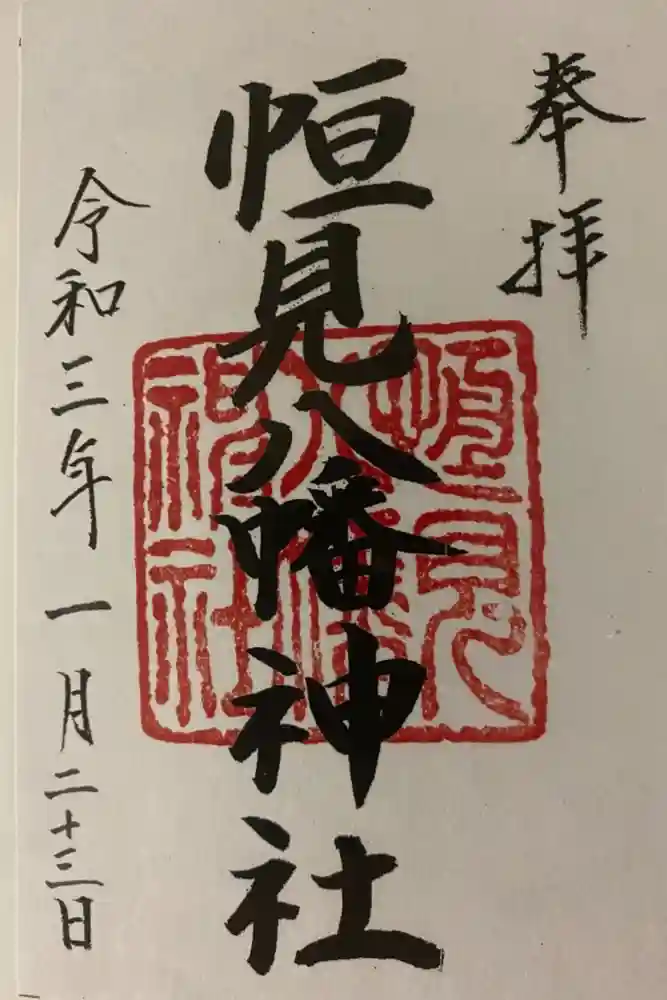 奉拝
恒見八幡神社
恒見
八幡
神社
令和三年一月二十三日